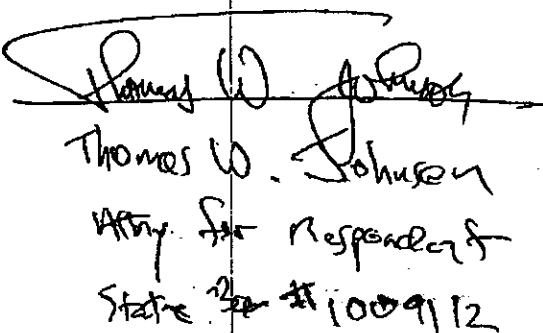 Thomas W. Johnson
Thomas W. Johnson
Atty. for Respondent
State Bar # 1009112